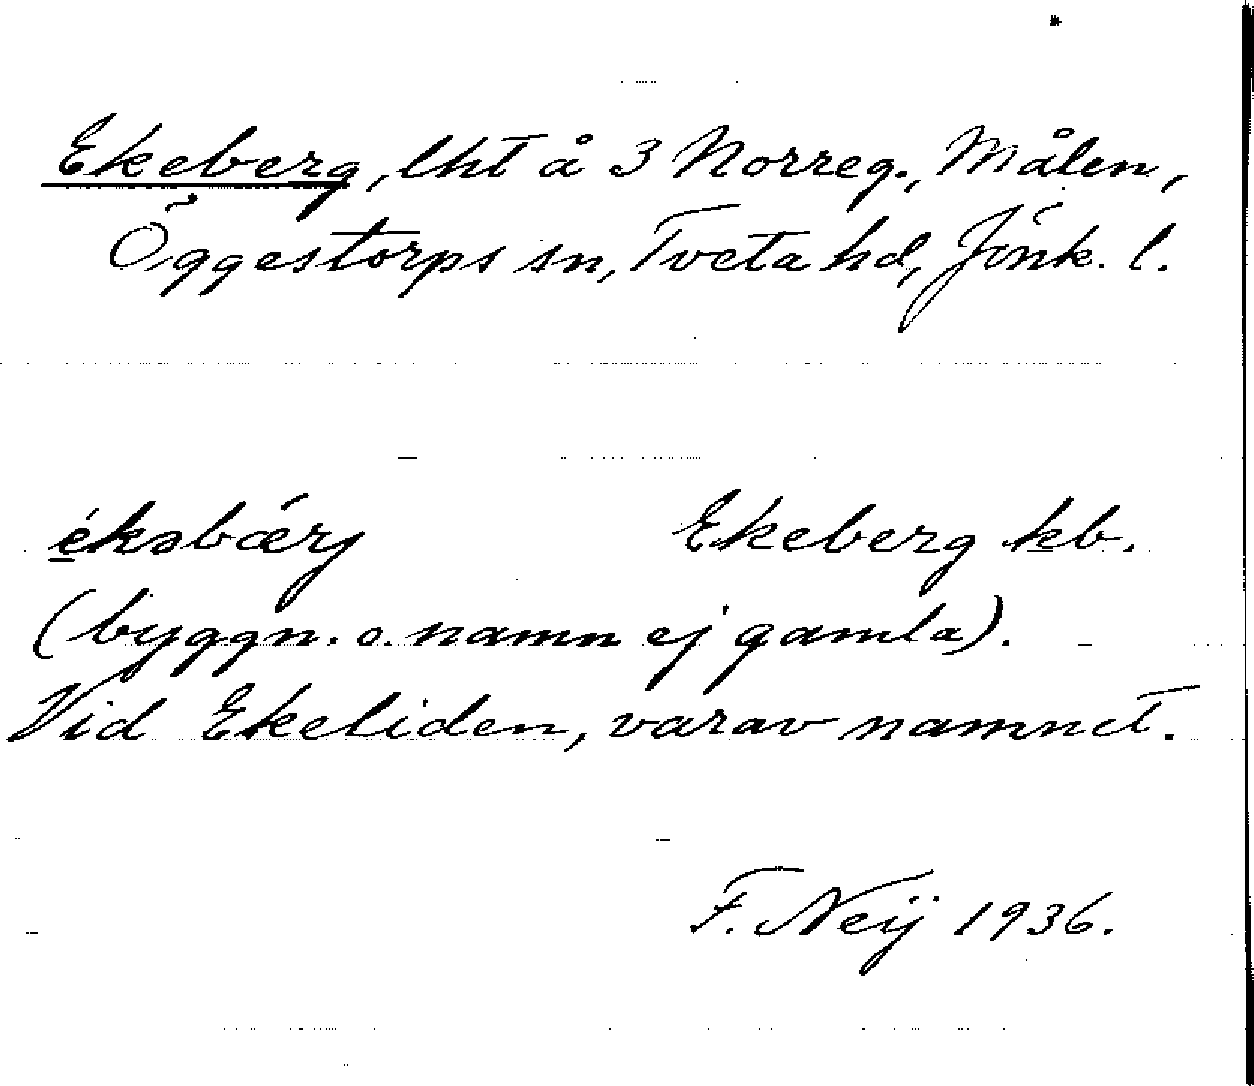 Ekeberg, lht å 3 Norreg., Målen,
Öggestorps sn, Tveta hd, Jönk. l.
ékəbærj Ekeberg kb.
(byggn. o. namn ej gamla).
Vid Ekeliden, varav namnet.
F. Neij 1936.